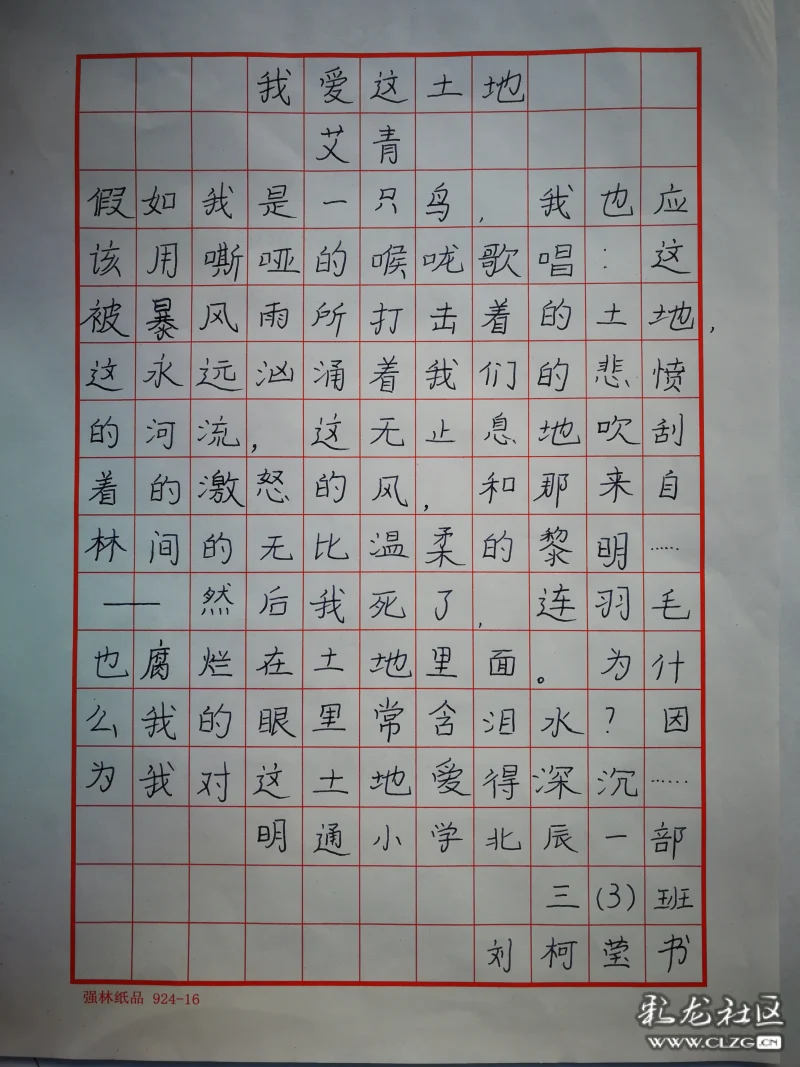 我爱这土地
艾青
假如我是一只鸟，我也应
该用嘶哑的喉咙歌唱：这
被暴风雨所打击着的土地，
这永远汹涌着我们的悲愤
的河流，这无止息地吹刮
着的激怒的风，和那来自
林间的无比温柔的黎明……
——然后我死了，连羽毛
也腐烂在土地里面。为什
么我的眼里常含泪水？因
为我对这土地爱得深沉……
明通小学北辰一部
三(3)班
刘柯莹书
强林纸品 924-16
彩龙社区
WWW.CLZG.CN